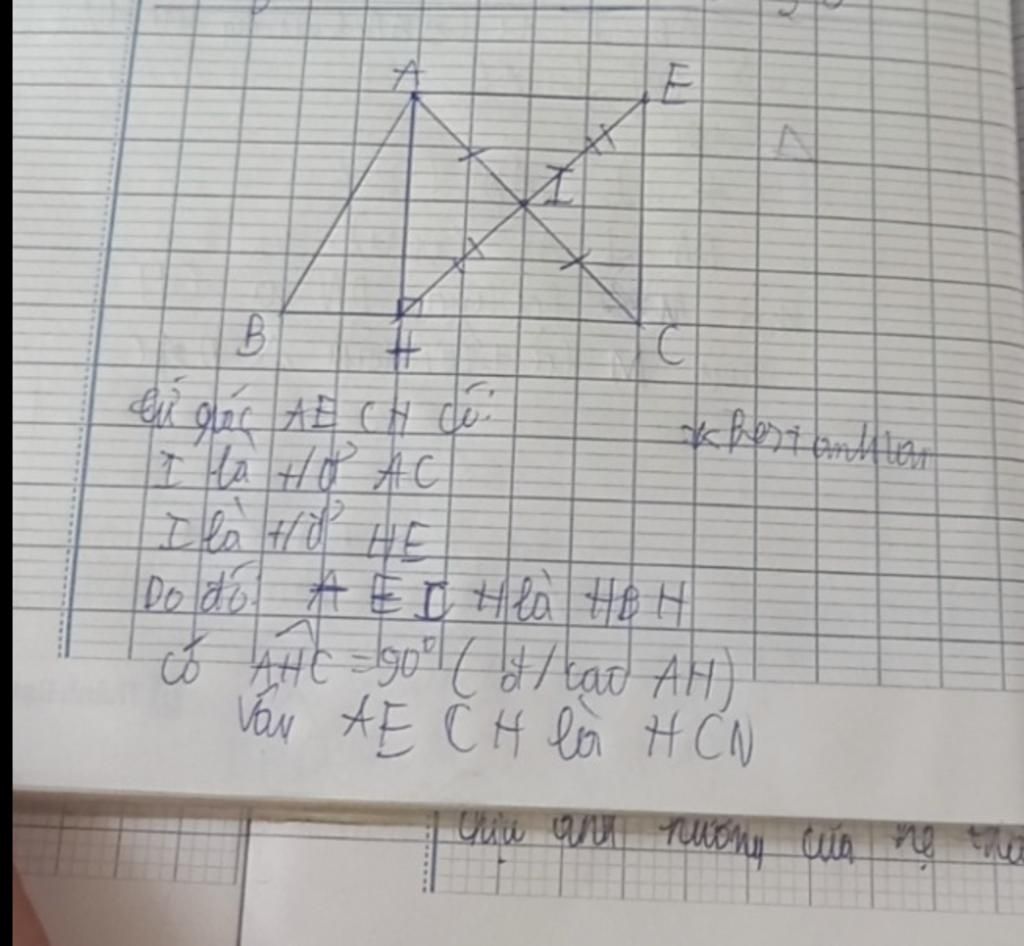 A E
I
B H C
tứ giác AECH có:
I là t/đ' AC
I là t/đ' HE
Do đó: AECH là HBH
có AHC = 90° (đ/cao AH)
Vậy AECH là HCN
chịu ảnh hưởng của hệ